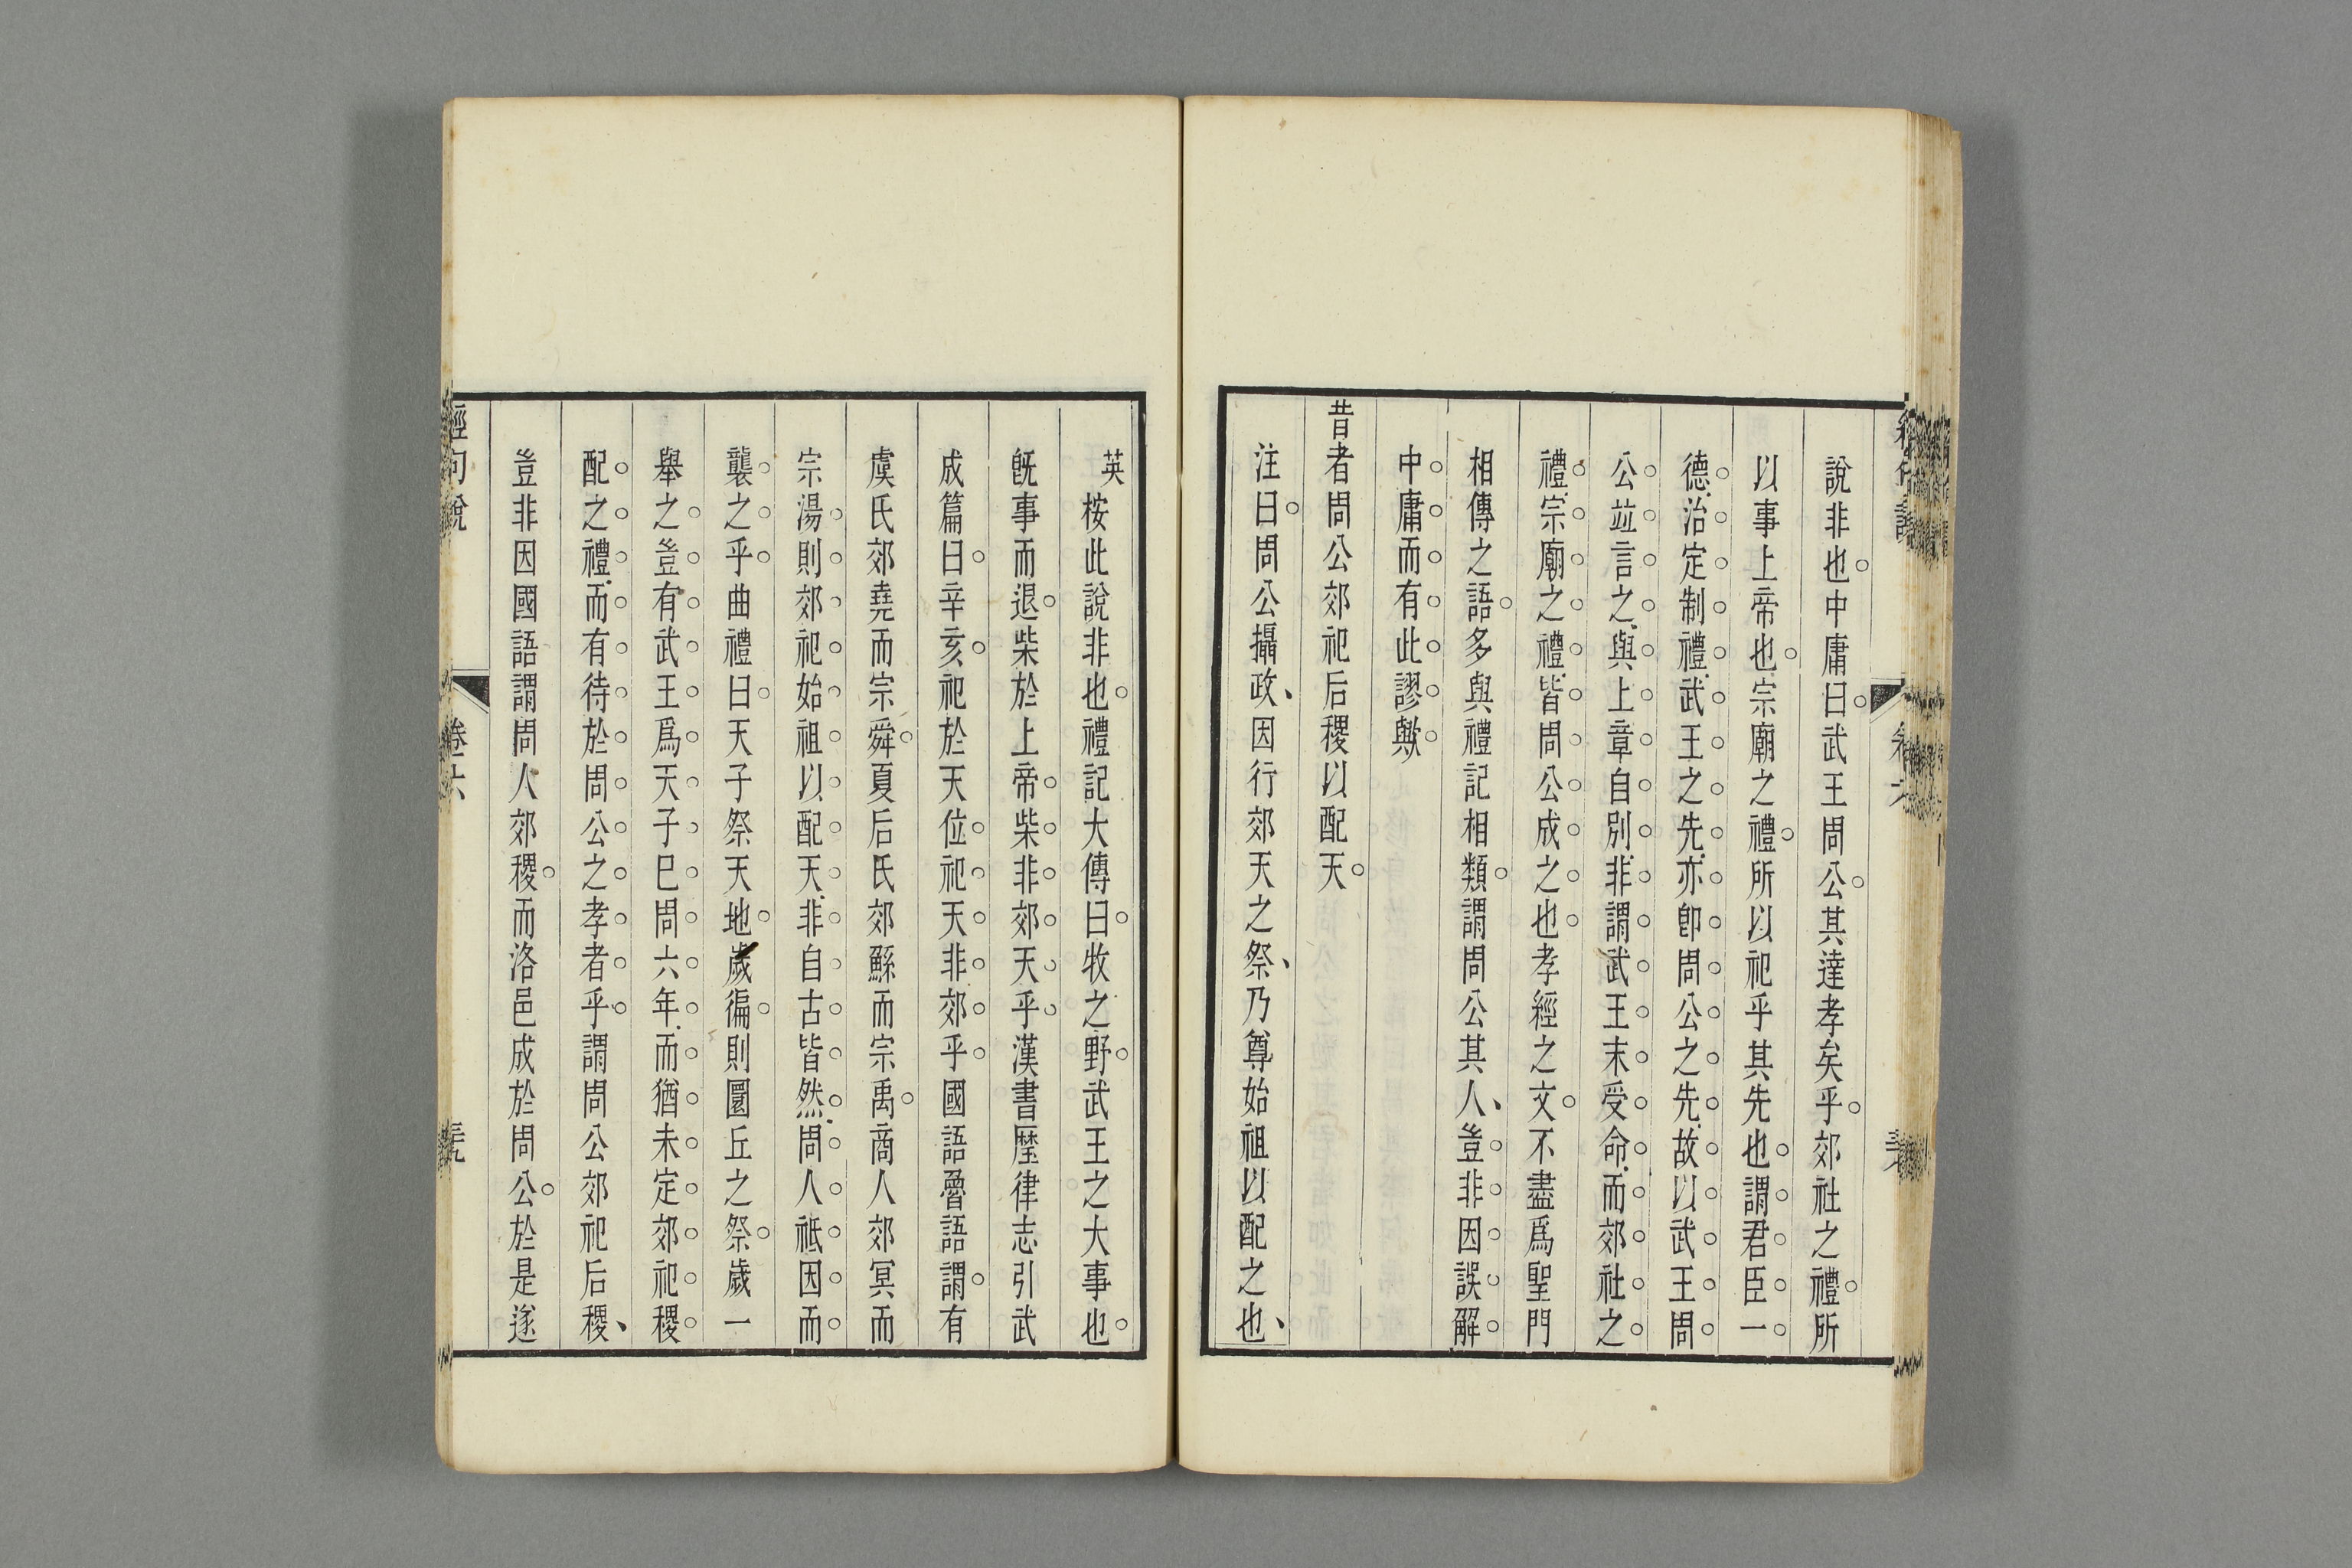 說非也中庸曰武王周公其達孝矣乎郊社之禮所
以事上帝也宗廟之禮所以祀乎其先也謂君臣一
德治定制禮武王之先亦卽周公之先故以武王周
公竝言之與上章自別非謂武王末受命而郊社之
禮宗廟之禮皆周公成之也孝經之文不盡爲聖門
相傳之語多與禮記相類謂周公其人豈非因誤解
中庸而有此謬歟
昔者周公郊祀后稷以配天
注曰周公攝政因行郊天之祭乃尊始祖以配之也
英
桉此說非也禮記大傳曰牧之野武王之大事也
旣事而退柴於上帝柴非郊天乎漢書厤律志引武
成篇曰辛亥祀於天位祀天非郊乎國語魯語謂有
虞氏郊堯而宗舜夏后氏郊鯀而宗禹商人郊冥而
宗湯則郊祀始祖以配天非自古皆然周人祗因而
襲之乎曲禮曰天子祭天地歲徧則圜丘之祭歲一
舉之豈有武王爲天子巳周六年而猶未定郊祀稷
配之禮而有待於周公之孝者乎謂周公郊祀后稷
豈非因國語謂周人郊稷而洛邑成於周公於是遂
經句說
卷六